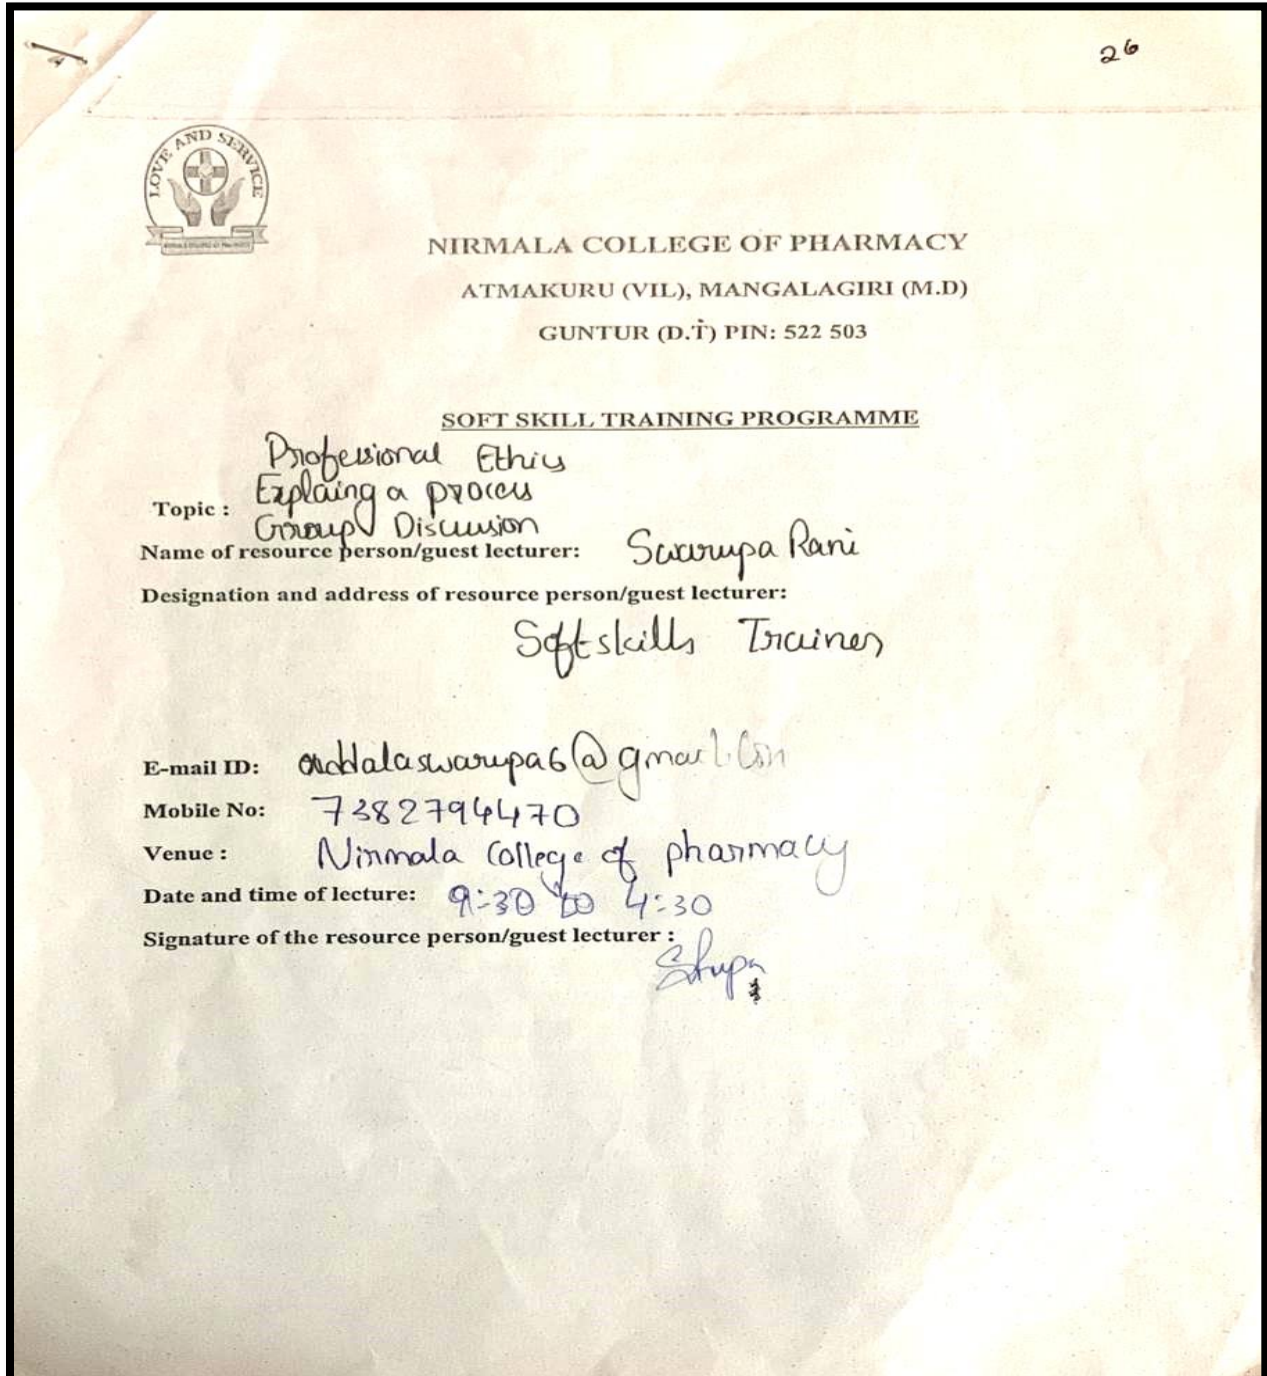 26
LOVE AND SERVICE
NIRMALA COLLEGE OF PHARMACY
ATMAKURU (VIL), MANGALAGIRI (M.D)
GUNTUR (D.T) PIN: 522 503
SOFT SKILL TRAINING PROGRAMME
Professional Ethics
Explaing a process
Topic :
Group Discussion
Name of resource person/guest lecturer: Swarupa Rani
Designation and address of resource person/guest lecturer:
Softskills Trainer
E-mail ID: addalaswarupa6@gmail.com
Mobile No: 7382794470
Venue : Nirmala College of pharmacy
Date and time of lecture: 9:30 to 4:30
Signature of the resource person/guest lecturer :